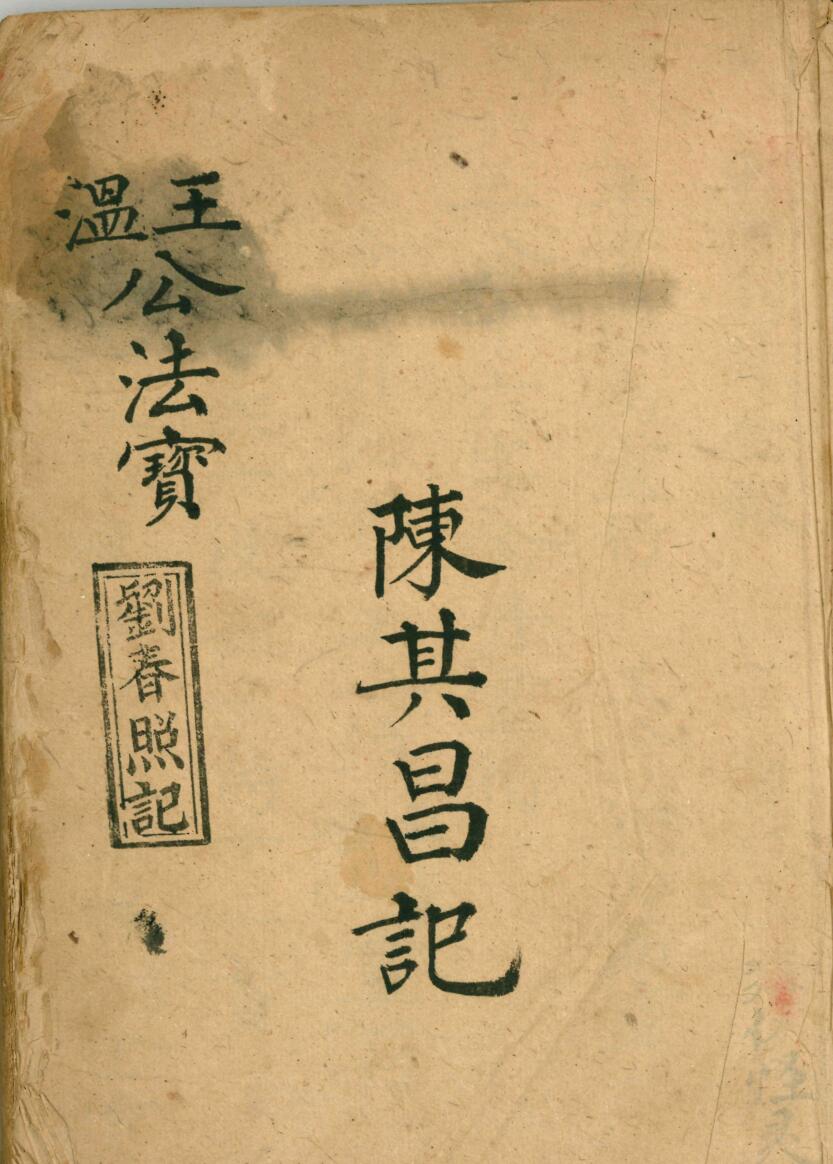 陳其昌記
王溫公法寶
劉春照記